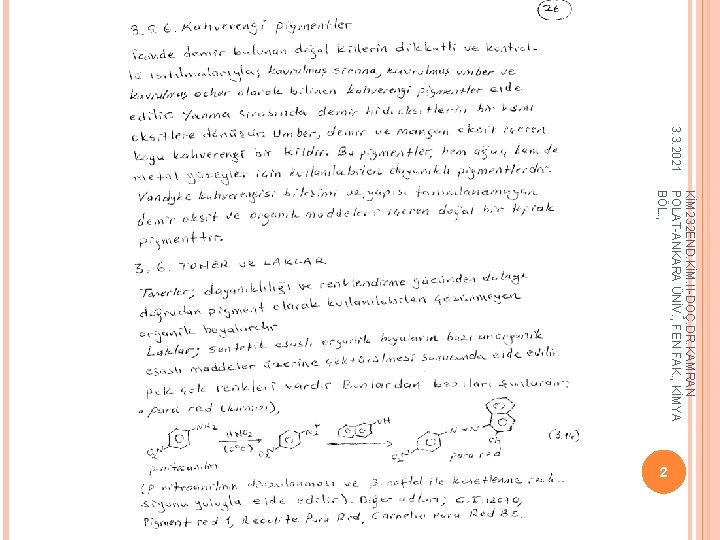 26
3.5.6. Kahverengi pigmentler
içinde demir bulunan doğal killerin dikkatli ve kontrol-
lü ısıtılmalarıyla; kavrulmuş sienna, kavrulmuş umber ve
kavrulmuş ocher olarak bilinen kahverengi pigmentler elde
edilir. Yanma sırasında demir hidroksitlerin bir kısmı
oksitlere dönüşür. Umber, demir ve mangan oksit içeren
koyu kahverengi bir kildir. Bu pigmentler, hem ağaç, hem de
metal yüzeyler için kullanılabilen dayanıklı pigmentlerdir.
Vandyke kahverengisi bileşimi ve yapısı tanımlanamayan
demir oksit ve organik maddeleri içeren doğal bir toprak
pigmenttir.
3.6. TONER ve LAKLAR
Tonerler; dayanıklılığı ve renklendirme gücünden dolayı
doğrudan pigment olarak kullanılabilen çözünmeyen
organik boyalardır.
Laklar; sentetik esaslı organik boyaların bazı anorganik
esaslı maddeler üzerine çöktürülmesi sonucunda elde edilir.
pek çok renkleri vardır. Bunlardan bazıları şunlardır;
para red (kırmızı),
NH2 HNO2 (0°C) OH N=N OH
O2N O2N O2N (3.16)
p.nitroanilin para red
(p nitroanilinin diazolanması ve β-naftol ile
siyonu yoluyla elde edilir). Diğer adları; C.I. 12070,
Pigment red 1, Recolite Para Red, Carnelio Para Red BS.
3.3.2021
KİM232 END.KİM.II-DOÇ.DR.KAMRAN
POLAT-ANKARA ÜNİV., FEN FAK., KİMYA
BÖL.,
2